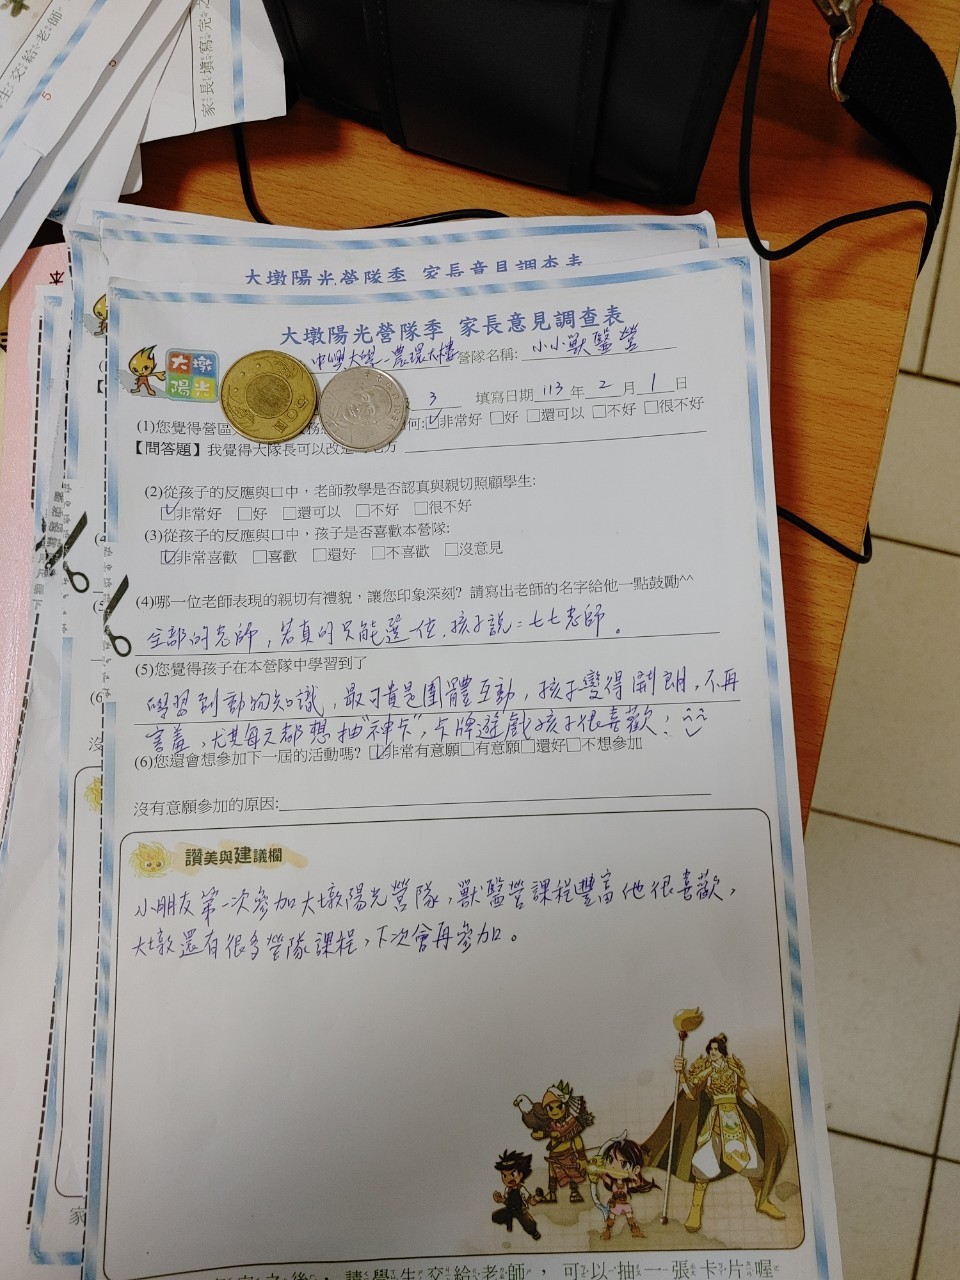 生交給老師
家長填寫完之
大墩陽光營隊季 家長意見調查表
大墩陽光營隊季 家長意見調查表
大墩
陽光
中興大學-農環大樓 營隊名稱: 小小獸醫營
3 填寫日期 113 年 2 月 1 日
(1)您覺得營區 何:☑非常好 □好 □還可以 □不好 □很不好
【問答題】我覺得大隊長可以改進的地方
(2)從孩子的反應與口中，老師教學是否認真與親切照顧學生:
☑非常好 □好 □還可以 □不好 □很不好
(3)從孩子的反應與口中，孩子是否喜歡本營隊:
☑非常喜歡 □喜歡 □還好 □不喜歡 □沒意見
(4)哪一位老師表現的親切有禮貌，讓您印象深刻? 請寫出老師的名字給他一點鼓勵^^
全部的老師，若真的只能選一位，孩子說：七七老師。
(5)您覺得孩子在本營隊中學習到了
學習到動物知識，最可貴是團體互動，孩子變得開朗，不再
害羞，尤其每天都想抽"神卡"，卡牌遊戲孩子很喜歡！
(6)您還會想參加下一屆的活動嗎? ☑非常有意願□有意願□還好□不想參加
沒有意願參加的原因:
讚美與建議欄
小朋友第一次參加大墩陽光營隊，獸醫營課程豐富他很喜歡，
大墩還有很多營隊課程，下次會再參加。
之後，請學生交給老師，可以抽一張卡片喔